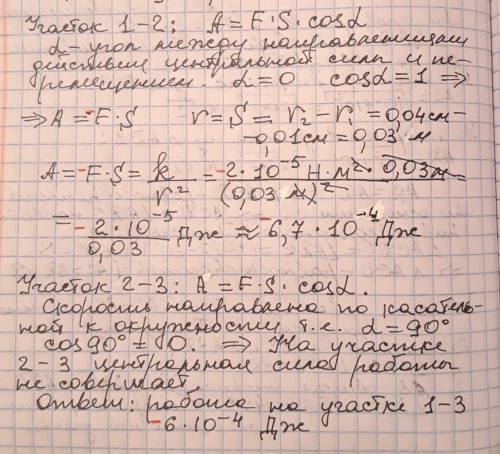 Участок 1-2: A = F·S·cosα
α-угол между направлениями
действия центральной силы и пе-
ремещением. α=0 cosα=1 ⇒
⇒ A = -F·S r = S = r₂ - r₁ = 0,04 см -
-0,01 см = 0,03 м
A = -F·S = k/r² = -2·10⁻⁵ Н·м²·0,03 м/(0,03 м)² =
= -2·10⁻⁵/0,03 Дж ≈ -6,7·10⁻⁴ Дж
Участок 2-3: A = F·S·cosα.
Скорость направлена по касатель-
ной к окружности т.е. α=90°
cos90° = 0. ⇒ На участке
2-3 центральная сила работы
не совершает.
Ответ: работа на участке 1-3
-6·10⁻⁴ Дж